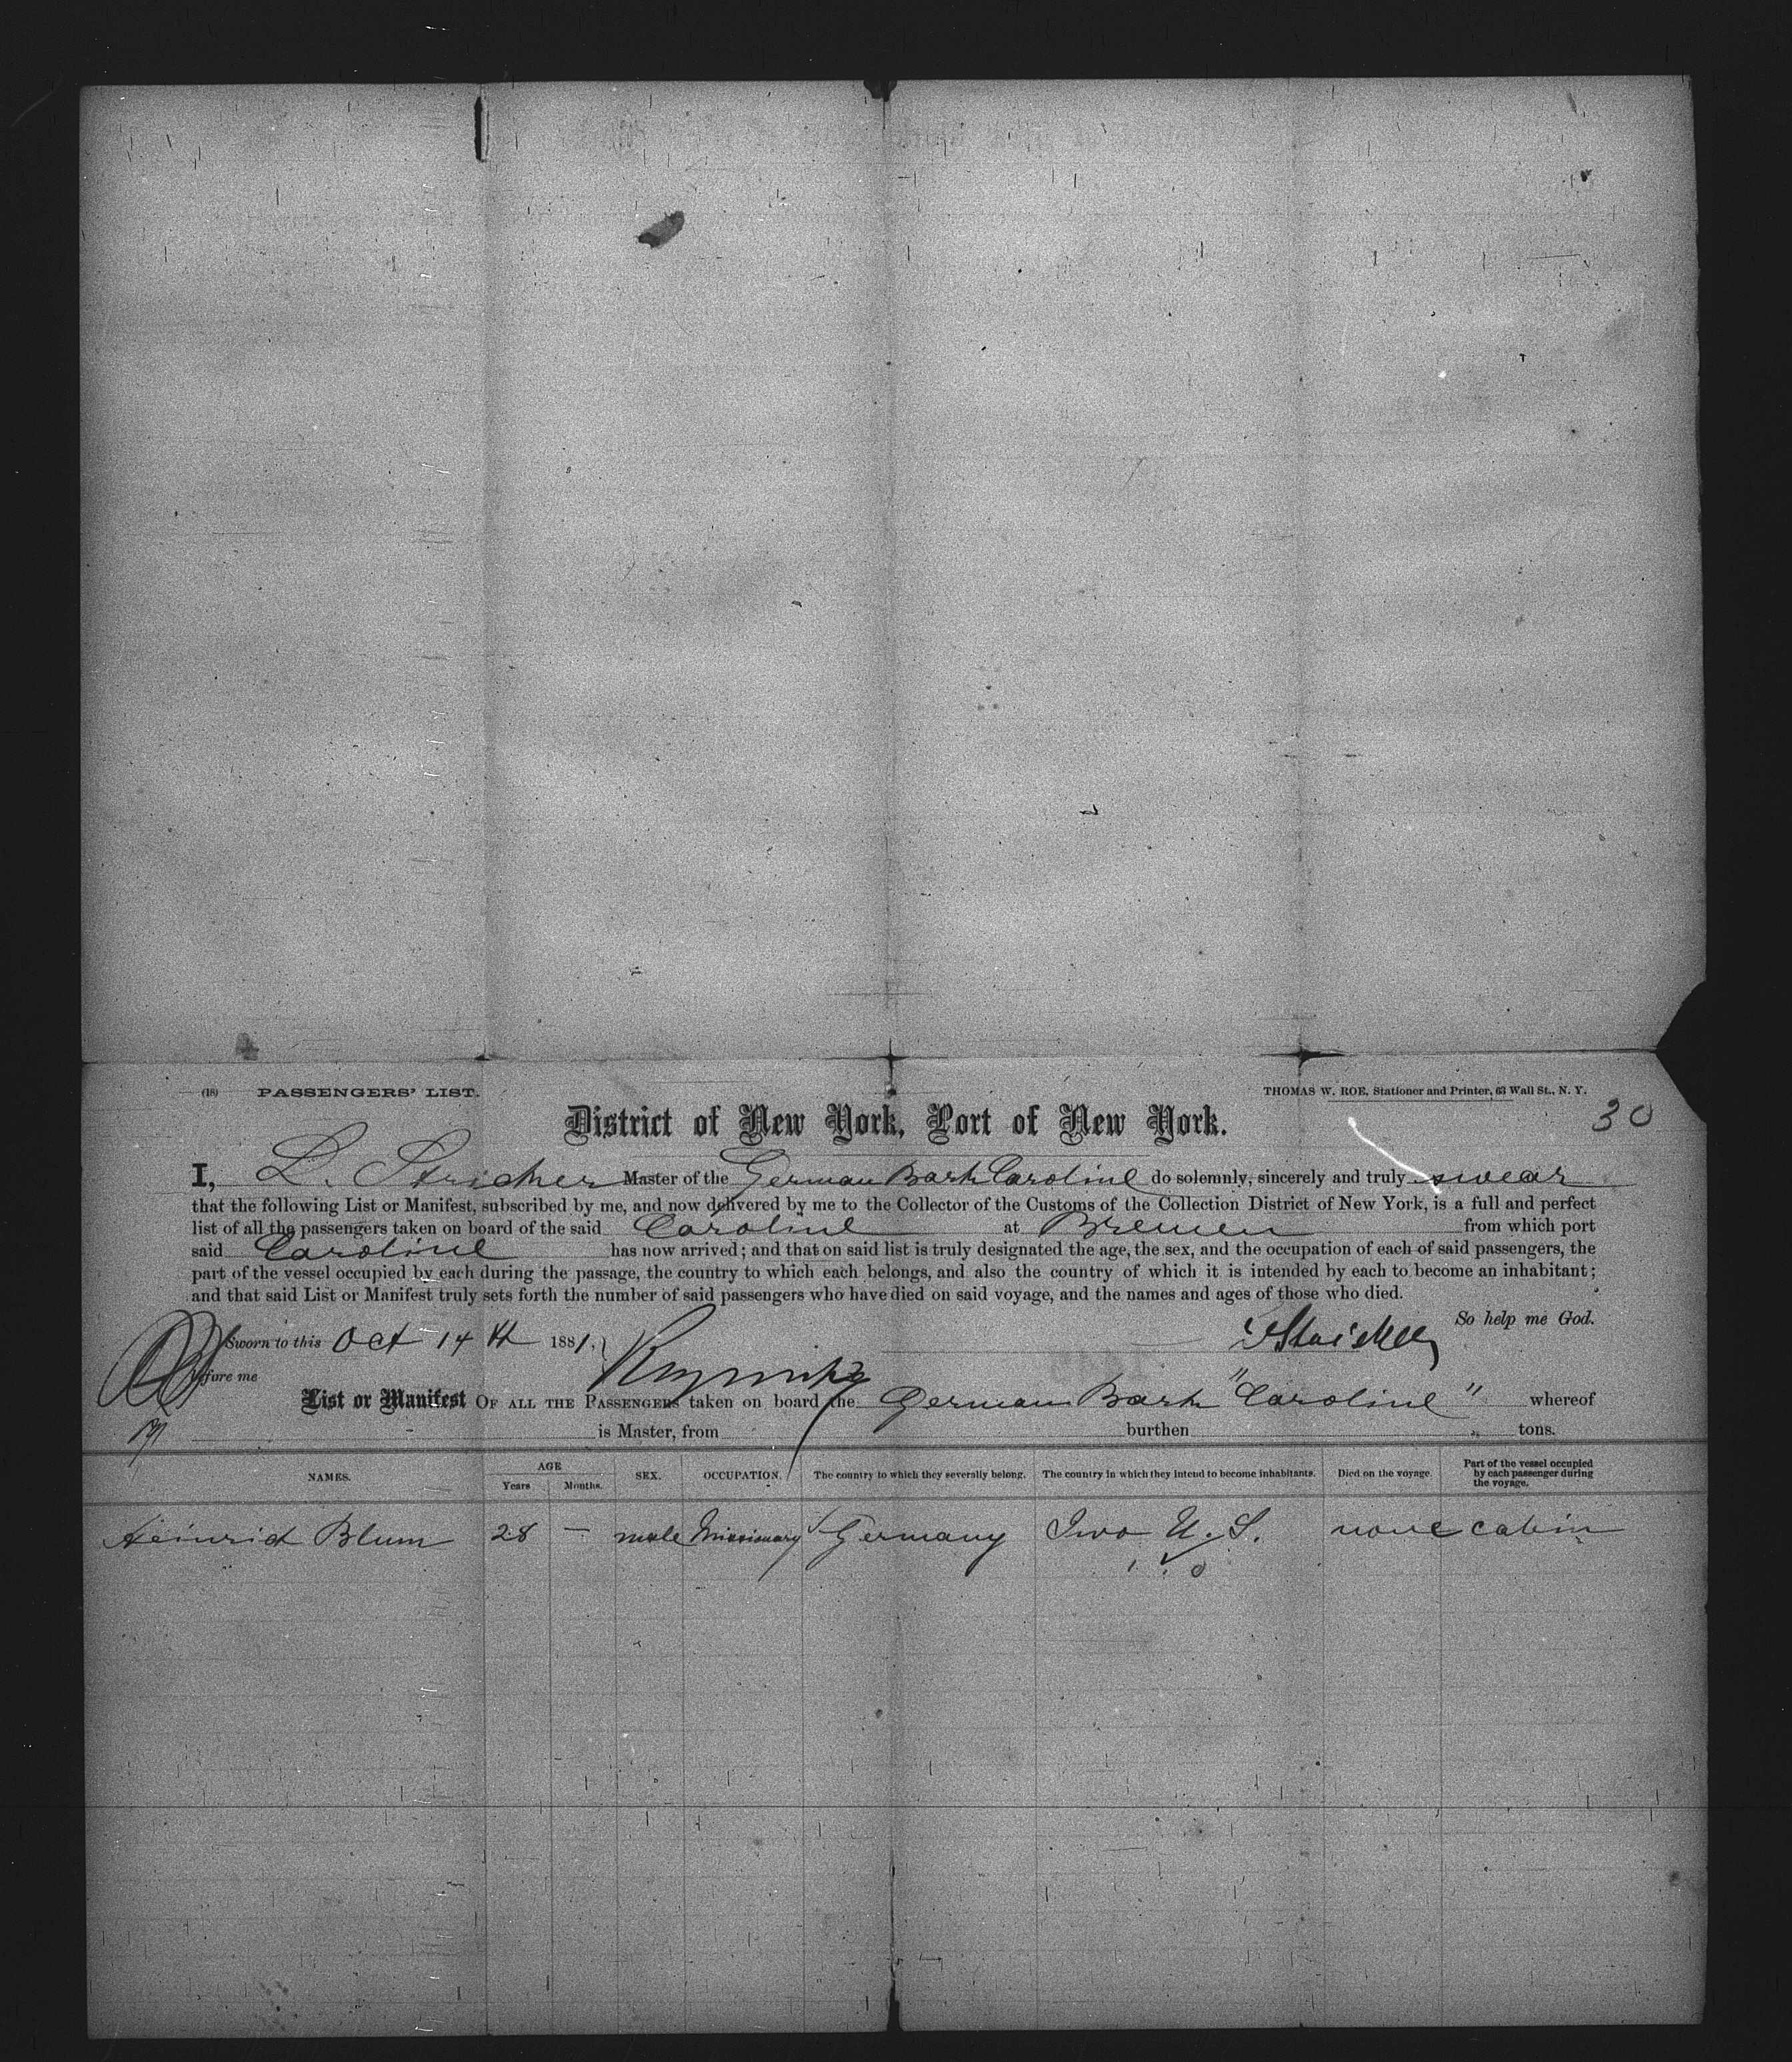 (18) PASSENGERS' LIST.
THOMAS W. ROE, Stationer and Printer, 63 Wall St., N. Y.
30
District of New York, Port of New York.
I, L. Stricker Master of the German Bark Caroline do solemnly, sincerely and truly swear
that the following List or Manifest, subscribed by me, and now delivered by me to the Collector of the Customs of the Collection District of New York, is a full and perfect
list of all the passengers taken on board of the said Caroline at Bremen from which port
said Caroline has now arrived; and that on said list is truly designated the age, the sex, and the occupation of each of said passengers, the
part of the vessel occupied by each during the passage, the country to which each belongs, and also the country of which it is intended by each to become an inhabitant;
and that said List or Manifest truly sets forth the number of said passengers who have died on said voyage, and the names and ages of those who died.
So help me God.
Sworn to this Oct 14th 1881.
before me
List or Manifest OF ALL THE PASSENGERS taken on board the German Bark "Caroline" whereof
is Master, from burthen tons.
NAMES. AGE Years Months. SEX. OCCUPATION. The country to which they severally belong. The country in which they intend to become inhabitants. Died on the voyage. Part of the vessel occupied by each passenger during the voyage.
Heinrich Blum 28 — male Missionary Germany U. S. none cabin